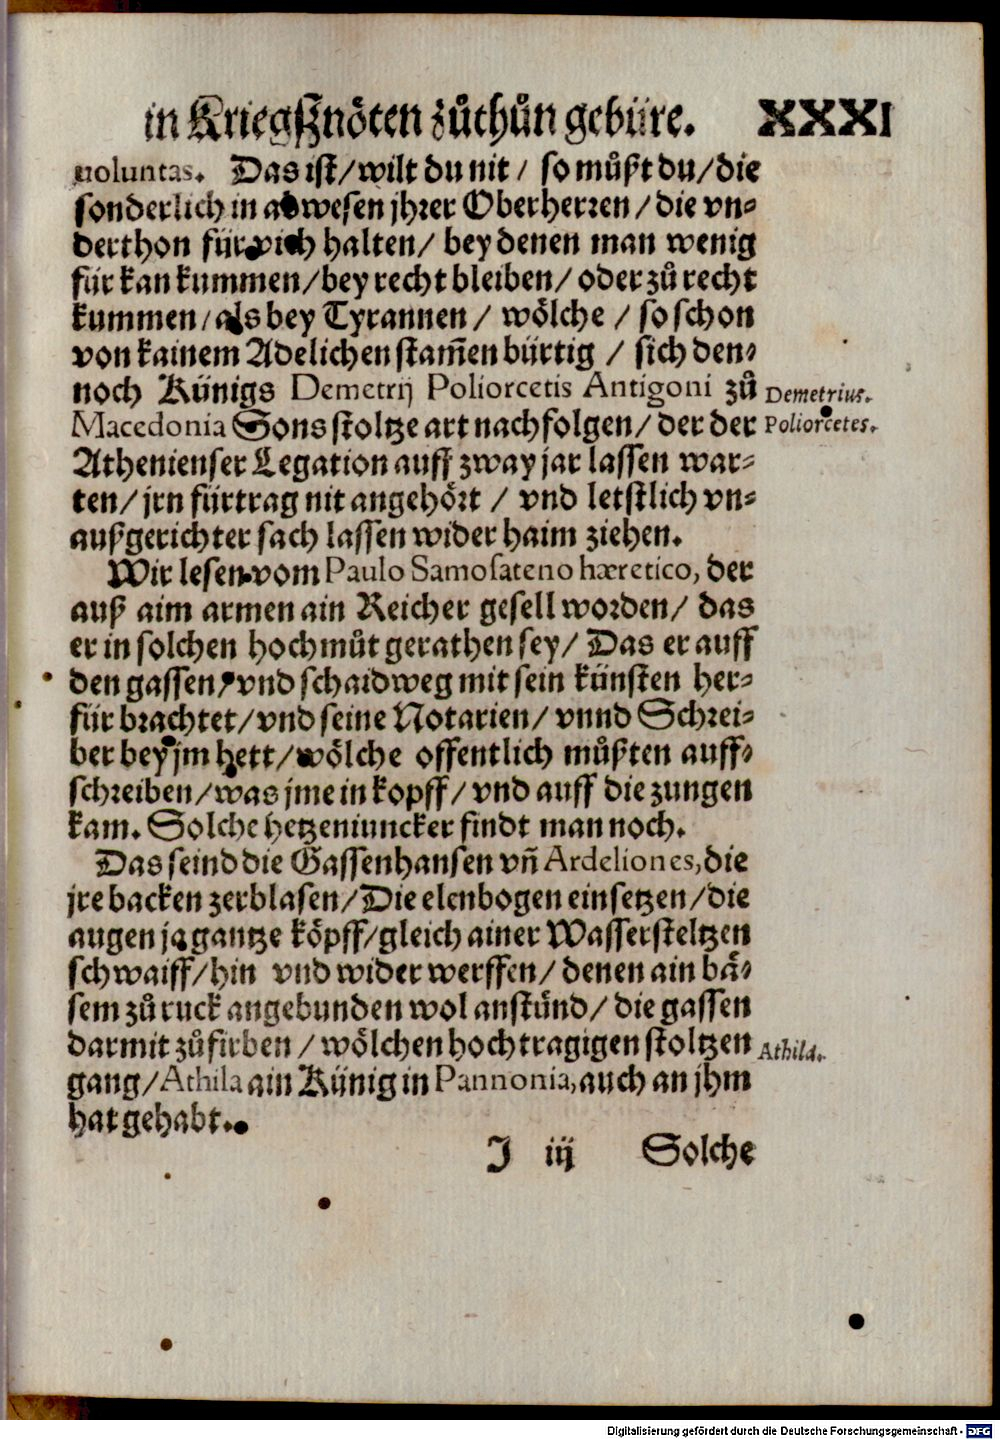 in Kriegßnöten zůthůn gebüre. XXXI
uoluntas. Das ist/wilt du nit/ so můßt du/die
sonderlich in abwesen jhrer Oberherren/die vn⸗
derthon für vich halten/ bey denen man wenig
für kan kummen/bey recht bleiben/ oder zů recht
kummen/als bey Tyrannen / wölche / so schon
von kainem Adelichen stam̄en bürtig / sich den⸗
noch Künigs Demetrij Poliorcetis Antigoni zů
Demetrius.
Macedonia Sons stoltze art nachfolgen/ der der
Poliorcetes.
Athenienser Legation auff zway jar lassen war⸗
ten/ jrn fürtrag nit angehört / vnd letstlich vn⸗
außgerichter sach lassen wider haim ziehen.
Wir lesen vom Paulo Samosateno hæretico, der
auß aim armen ain Reicher gesell worden/ das
er in solchen hochmůt gerathen sey/ Das er auff
den gassen/ vnd schaidweg mit sein künsten her⸗
für brachtet/vnd seine Notarien/ vnnd Schrei⸗
ber bey jm hett/wölche offentlich můßten auff⸗
schreiben/was jme in kopff/ vnd auff die zungen
kam. Solche hetzeniuncker findt man noch.
Das seind die Gassenhansen vn̄ Ardeliones, die
jre backen zerblasen/Die elenbogen einsetzen/die
augen ja gantze köpff/gleich ainer Wassersteltzen
schwaiff/hin vnd wider werffen/ denen ain bä⸗
sem zů ruck angebunden wol anstünd/ die gassen
darmit zůfirben / wölchen hochtragigen stoltzen
Athila.
gang/Athila ain Künig in Pannonia, auch an jhm
hat gehabt.
J iij Solche
Digitalisierung gefördert durch die Deutsche Forschungsgemeinschaft - DFG